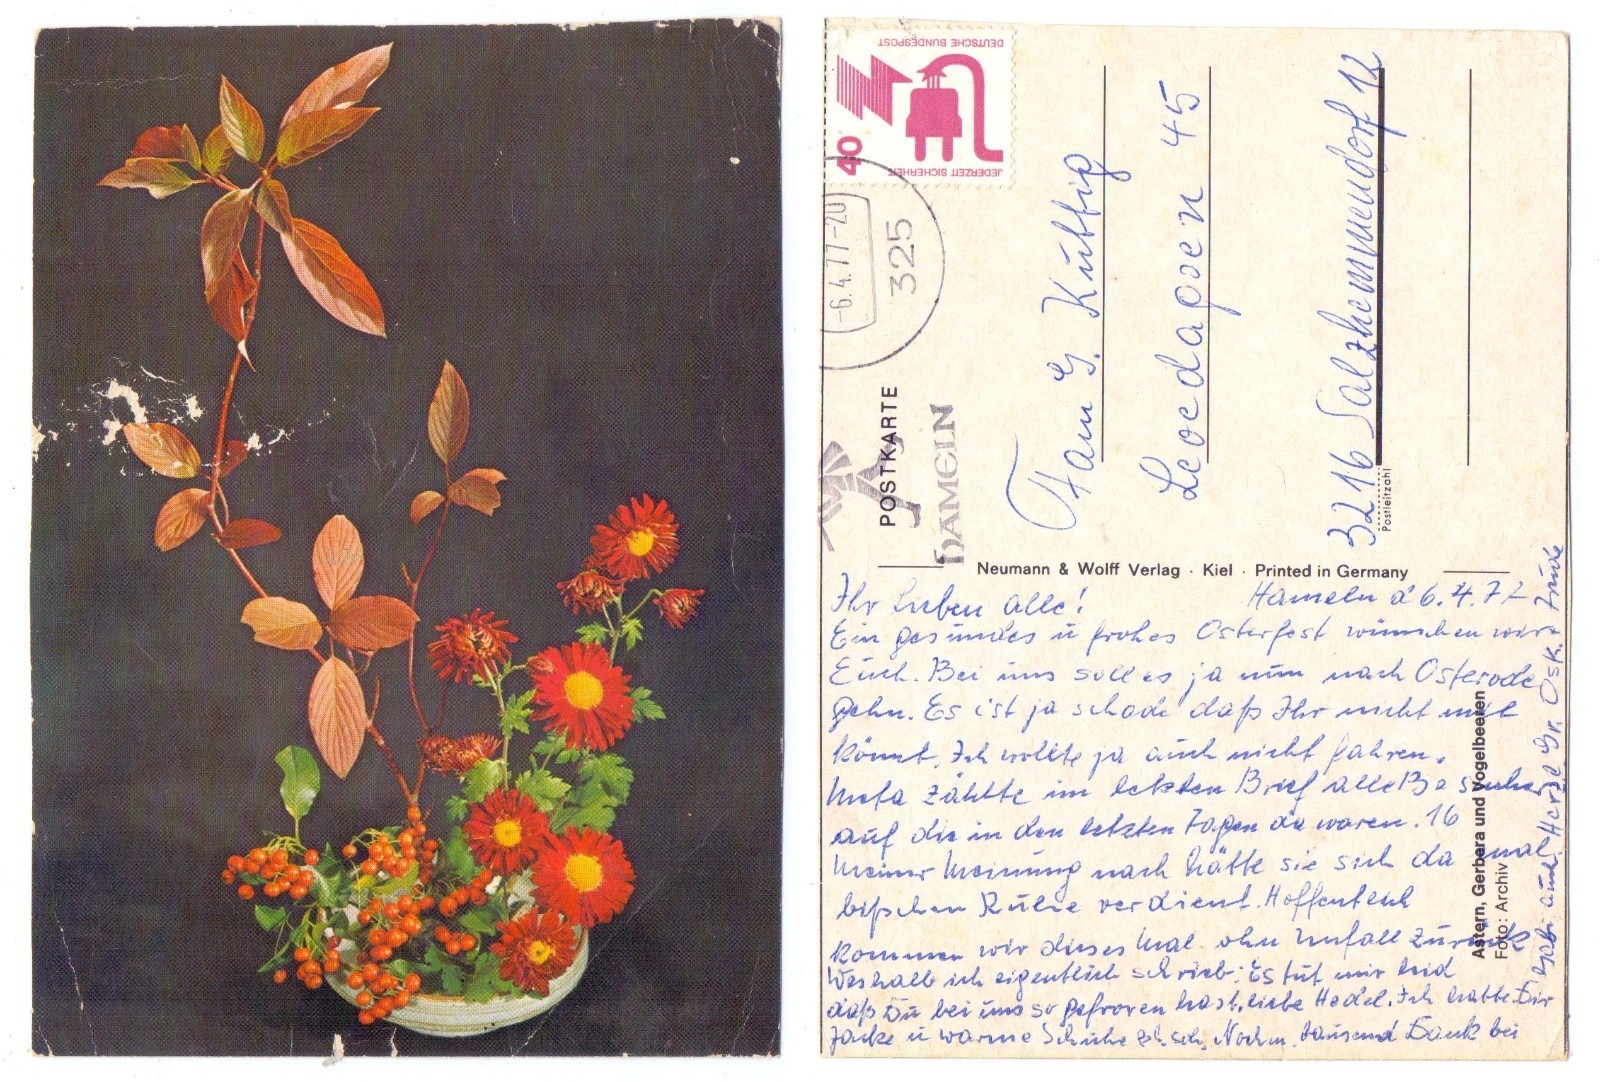 DEUTSCHE BUNDESPOST
40
JEDERZEIT SICHERHEIT
-6.4.77-20
325
HAMELN
POSTKARTE
Fam G. Küttig
3216 Salzhemmendorf 12
Postleitzahl
Neumann & Wolff Verlag · Kiel · Printed in Germany
Astern, Gerbera und Vogelbeeren
Foto: Archiv
Ihr lieben alle! Hameln d 6.4.77
Ein gesundes u frohes Osterfest wünschen wir
Euch. Bei uns soll es ja nun nach Osterode
gehn. Es ist ja schade daß Ihr nicht mit
könnt. Ich wollte ja auch nicht fahren.
zählte im letzten Brief alle Besucher
auf die in den letzten Tagen da waren. 16
Meiner Meinung nach hätte sie sich da mal
bißchen Ruhe verdient. Hoffentlich
kommen wir dieses Mal ohn Unfall zurück
Weshalb ich eigentlich schrieb: Es tut mir leid
daß Du bei uns so gefroren hast, liebe Hedel. Ich hatte Dir
Jacke u warme Schuhe Noch m. tausend Dank bei
Herzl Gr. Osk. + Trude